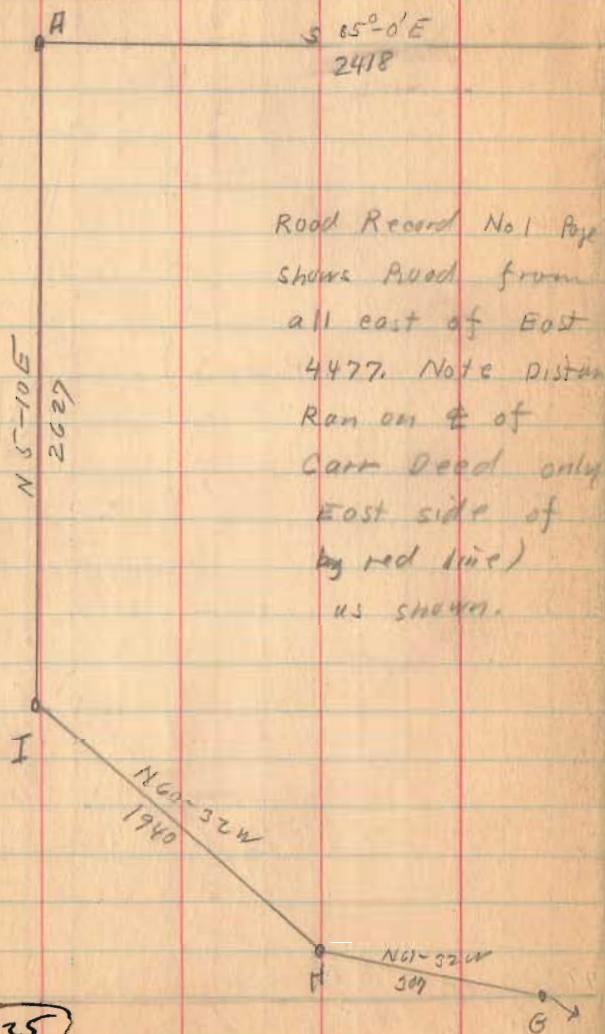 A
S 85°-0'E
2418
Road Record No 1 Page
shows Road from
all east of East
4477. Note Distan
Ran on ℄ of
Carr Deed only
East side of
by red line)
as shown.
N 5-10E
2627
I
N60-32W
1940
H
N61-32W
307
G
35